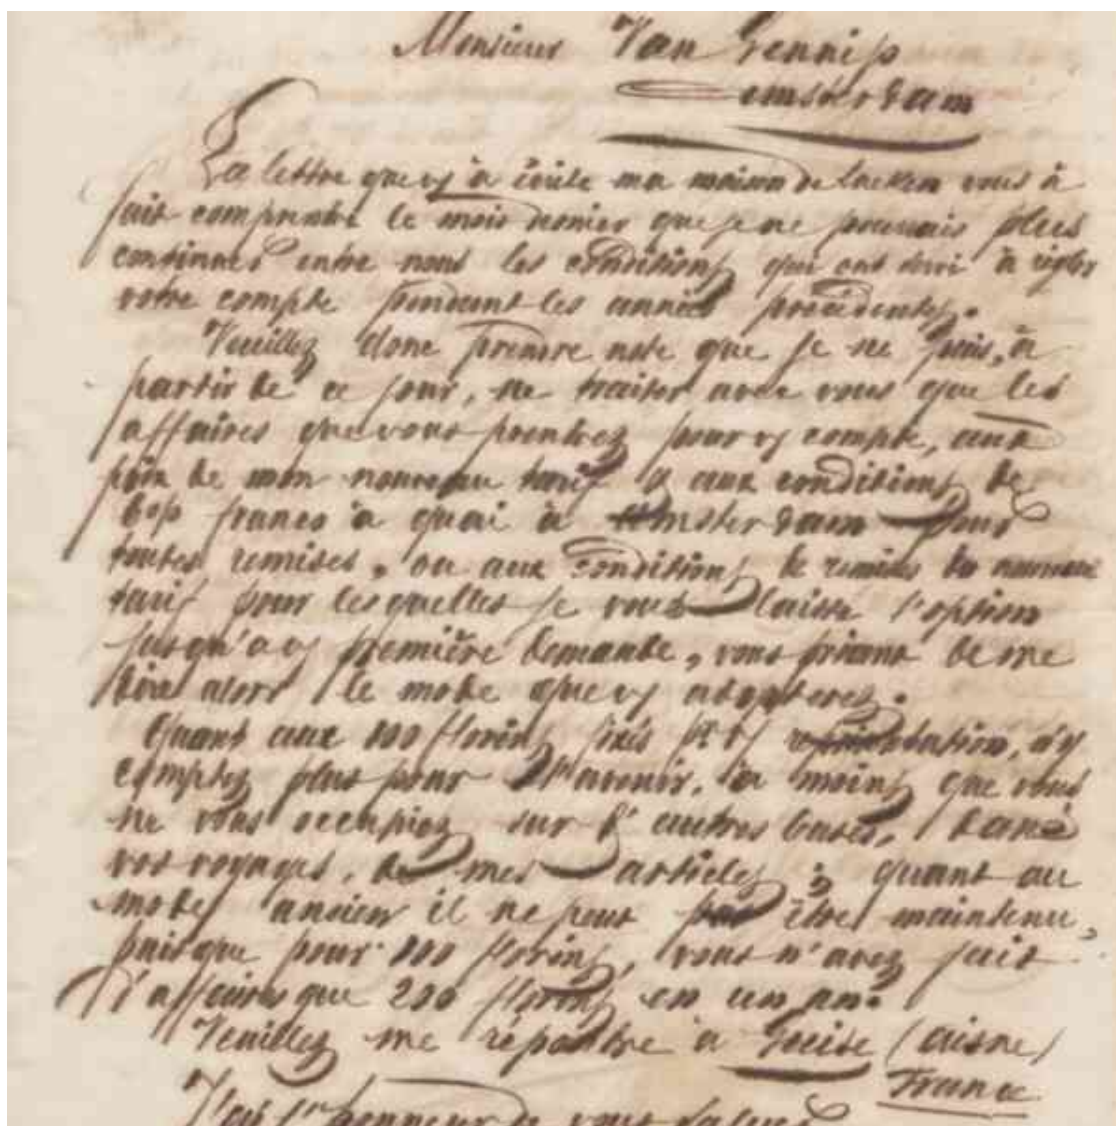 Monsieur Van Gennip
Amsterdam
La lettre que vs à écrite ma maison de Laeken vous à
fait comprendre le mois dernier que je ne pouvais plus
continuer entre nous les conditions qui ont servi à régler
votre compte pendant les années précédentes.
Veuillez donc prendre note que je ne puis, à
partir de ce jour, ne traiter avec vous que les
affaires que vous prendrez pour vs compte, aux
prix de mon nouveau tarif & aux conditions de
franco à quai à Amsterdam sous
toutes remises, ou aux conditions de remises du nouveau
tarif pour lesquelles je vous laisse l'option
jusqu'à vs première demande, vous priant de me
dire alors le mode que vs adopterez.
Quant aux 100 florins fixés pr vs représentation, n'y
comptez plus pour l'avenir, à moins que vous
ne vous occupiez sur d'autres bases, dans
vos voyages, de mes articles ; quant au
mode ancien il ne peut pas être maintenu,
puisque pour 100 florins, vous n'avez fait
d'affaires que 200 florins en un an.
Veuillez me répondre à Guise (Aisne)
France
J'ai l'honneur de vous saluer